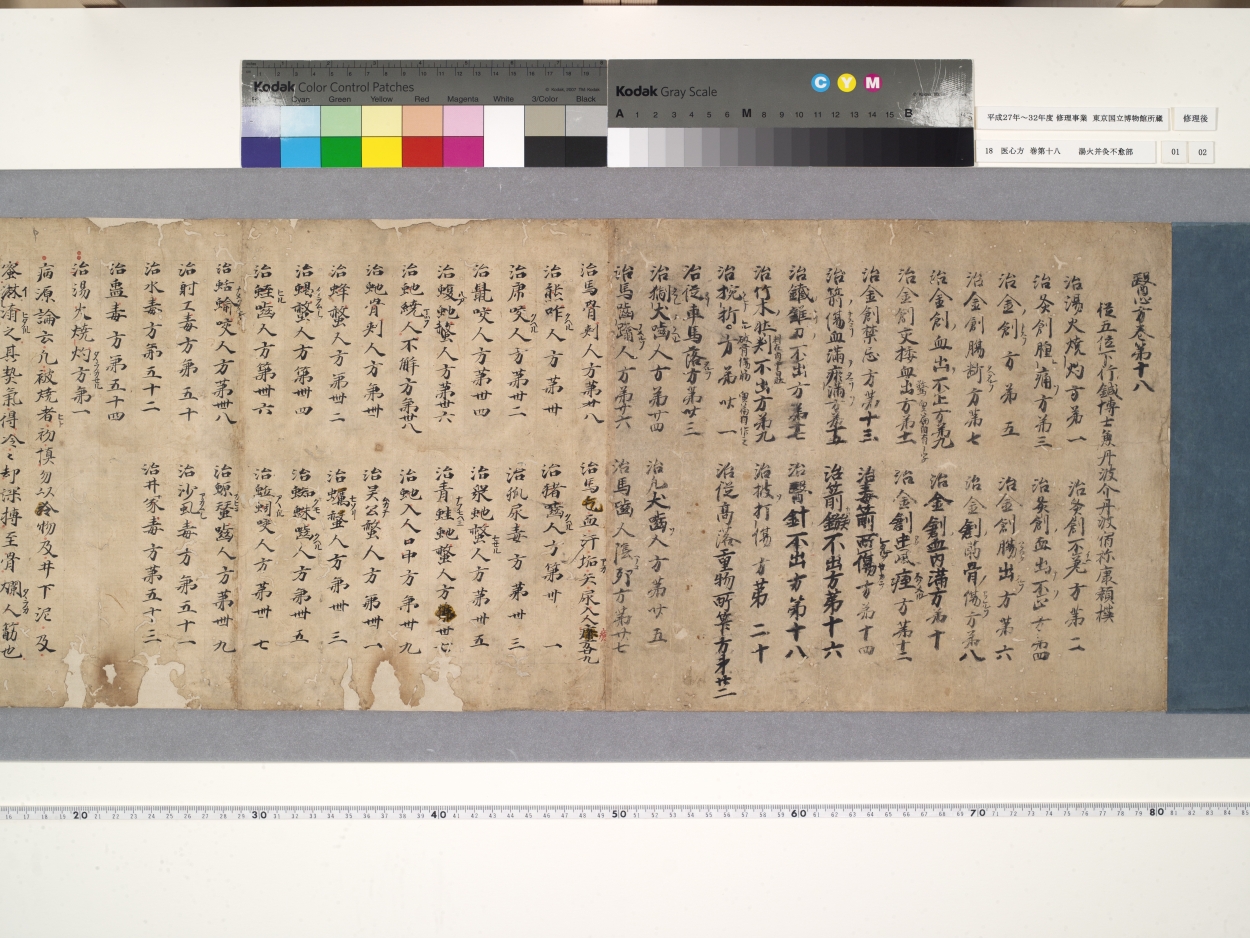 Kodak Color Control Patches
Cyan Green Yellow Red Magenta White 3/Color Black
Kodak Gray Scale
C Y M
A 1 2 3 4 5 6 M 8 9 10 11 12 13 14 15 B
平成27年~32年度 修理事業 東京国立博物館所蔵
修理後
18 医心方 巻第十八 湯火并灸不愈部
01
02
醫心方卷第十八
從五位下行鍼博士兼丹波介丹波宿祢康頼撰
治湯火燒灼方第一
治灸創不差方第二
治灸創腫痛方第三
治灸創血出不止方第四
治金創方第五
治金創腸出方第六
治金創腸斷方第七
治金創筋骨傷方第八
治金創血出不止方第九
治金創血內滿方第十
治金創交接血出方第十一
治金創中風痙方第十二
治金創禁忌方第十三
治毒箭所傷方第十四
治箭傷血滿瘀滿方第十五
治箭鏃不出方第十六
治鐵錐刀不出方第十七
治醫針不出方第十八
治竹木壯刺不出方第十九
治被打傷方第二十
治捥折方第廿一
治從高落重物所笮方第廿二
治從車馬落方第廿三
治猘犬齧人方第廿四
治凡犬齧人方第廿五
治馬齧踏人方第廿六
治馬齧人陰卵方第廿七
治馬骨刺人方第廿八
治馬毛血汗垢矢尿入人瘡方第廿九
治熊咋人方第卅
治猪齧人方第卅一
治虎咬人方第卅二
治狐尿毒方第卅三
治龍咬人方第卅四
治衆虵螫人方第卅五
治蝮虵螫人方第卅六
治青蛙虵螫人方第卅七
治虵繞人不解方第卅八
治虵入人口中方第卅九
治虵骨刺人方第卌
治吴公螫人方第卌一
治蜂螫人方第卌二
治蠆螫人方第卌三
治蝎螫人方第卌四
治蜘蛛齧人方第卌五
治蛭齧人方第卌六
治蚯蚓咬人方第卌七
治蛞蝓咬人方第卌八
治螈蚕齧人方第卌九
治射工毒方第五十
治沙虱毒方第五十一
治水毒方第五十二
治井冢毒方第五十三
治蠱毒方第五十四
治湯火燒灼方第一
病源論云凡被燒者初慎勿以冷物及井下泥及
蜜淋溻之其熱氣得冷々却深搏至骨爛人筋也
20 30 40 50 60 70 80